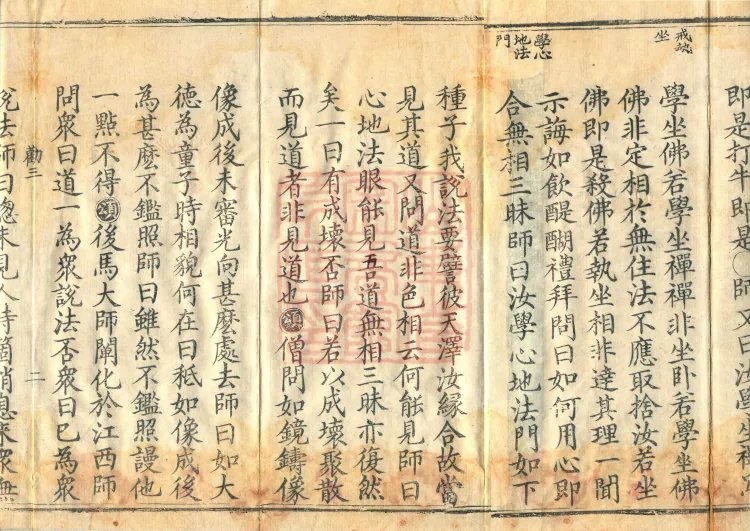 即是打牛即是師又曰汝學坐禪為
戒執
坐
學坐佛若學坐禪禪非坐卧若學坐佛
佛非定相於無住法不應取捨汝若坐
佛即是殺佛若執坐相非達其理一聞
示誨如飲醍醐禮拜問曰如何用心即
學心
地法
門
合無相三昧師曰汝學心地法門如下
種子我說法要譬彼天澤汝緣合故當
見其道又問道非色相云何能見師曰
心地法眼能見吾道無相三昧亦復然
矣一曰有成壞否師曰若以成壞聚散
而見道者非見道也頌僧問如鏡鑄像
像成後未審光向甚麼處去師曰如大
德為童子時相貌何在曰秪如像成後
為甚麼不鑑照師曰雖然不鑑照謾他
一點不得頌後馬大師闡化於江西師
問衆曰道一為衆說法否衆曰已為衆
勸三
二
說法師曰總未見人持箇消息來衆無